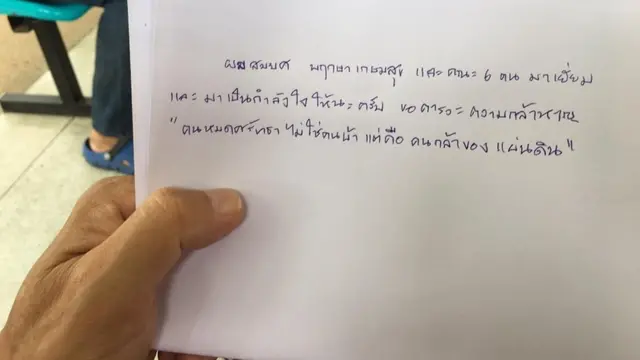 ผมสมยศ พฤกษาเกษมสุข และคณะ 6 คน มาเยี่ยม
และ มาเป็นกำลังใจให้นะครับ ขอคารวะ ความกล้าหาญ
"คนหมดศรัทธา ไม่ใช่คนบ้า แต่คือ คนกล้าของ แผ่นดิน"